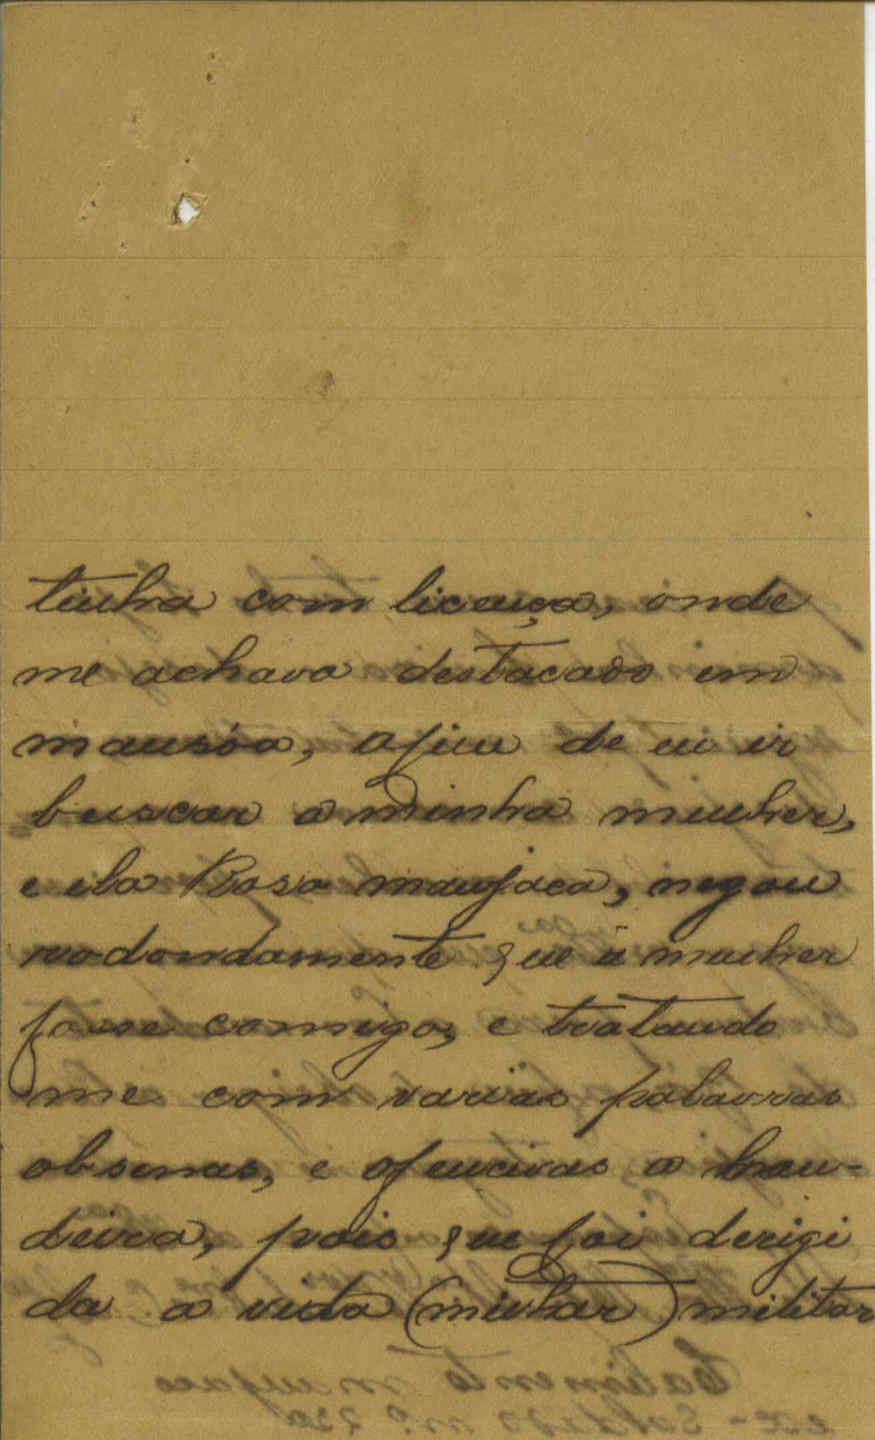 tinha com licença, onde
me achava destacado em
mansôa, afim de eu ir
buscar a minha mulher,
e ela Rosa manjaca, negou
rodondamente que a mulher
fosse comigo, e tratando
me com varias palavras
obsenas, e ofencivas a ban-
deira, pois que foi derigi
da a vida (minhar) militar